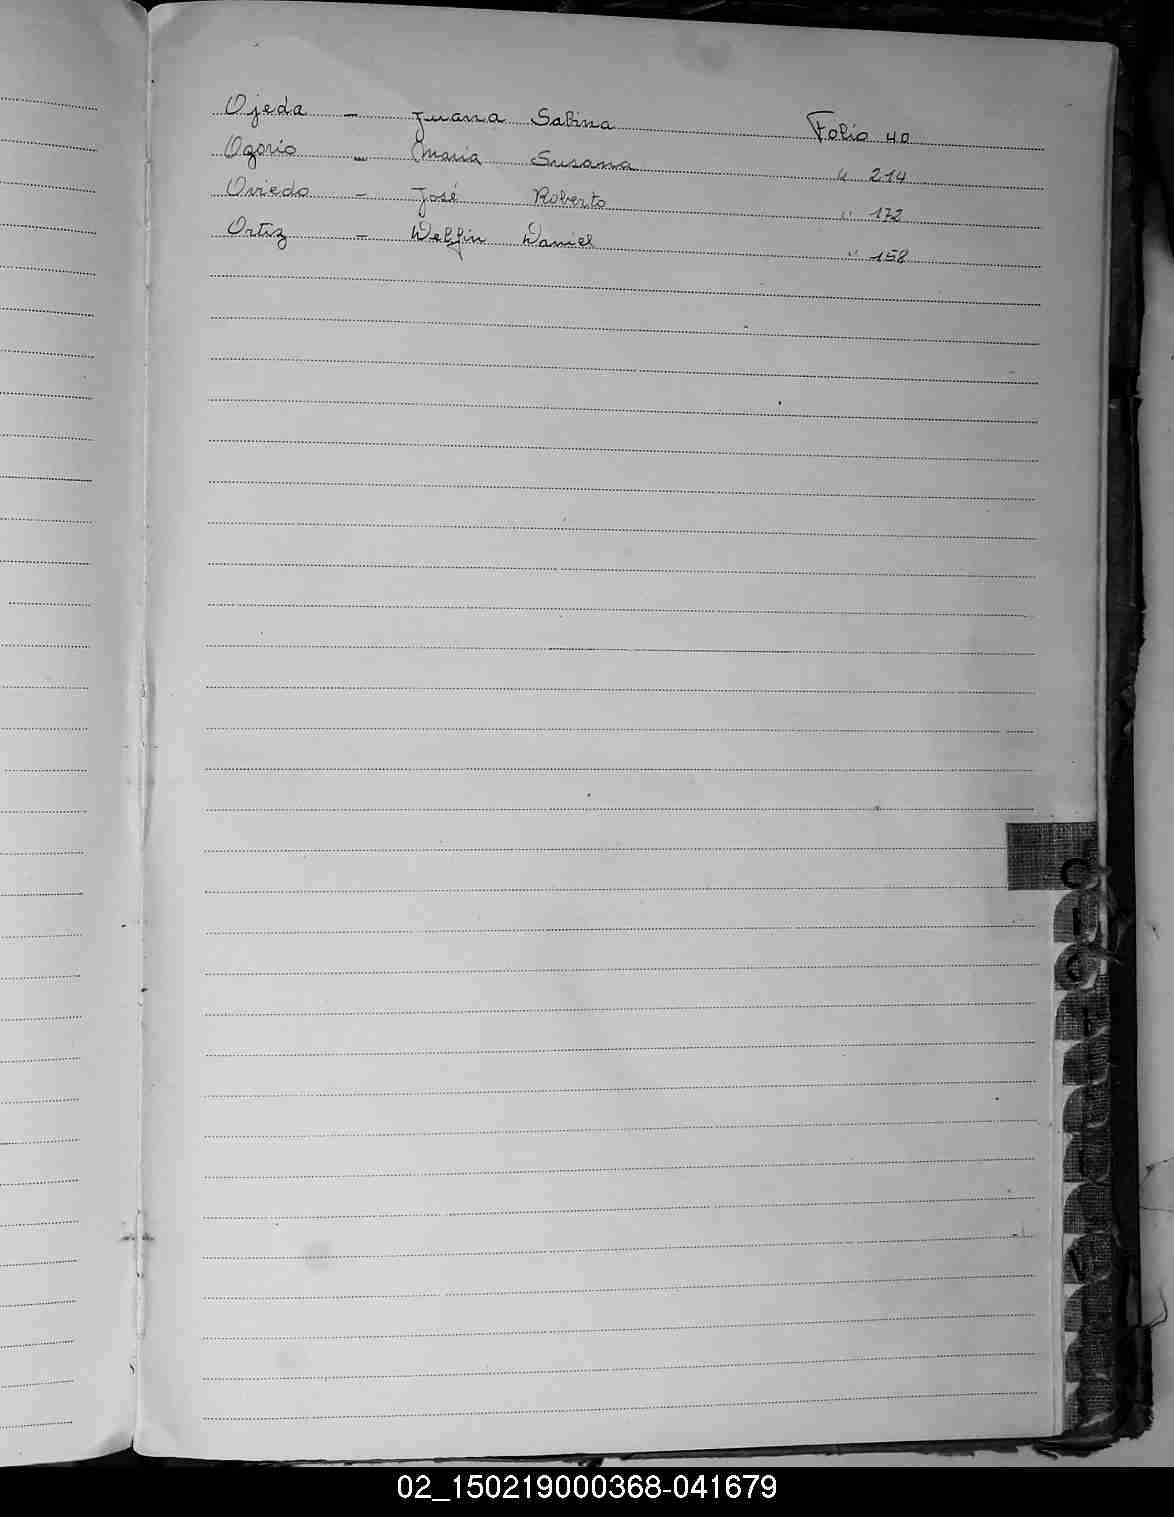 Ojeda - Juana Sabina Folio 40
Ogorio - Maria Susana " 214
Oviedo - José Roberto " 172
Ortiz - Delfin Daniel " 158
O
02_150219000368-041679